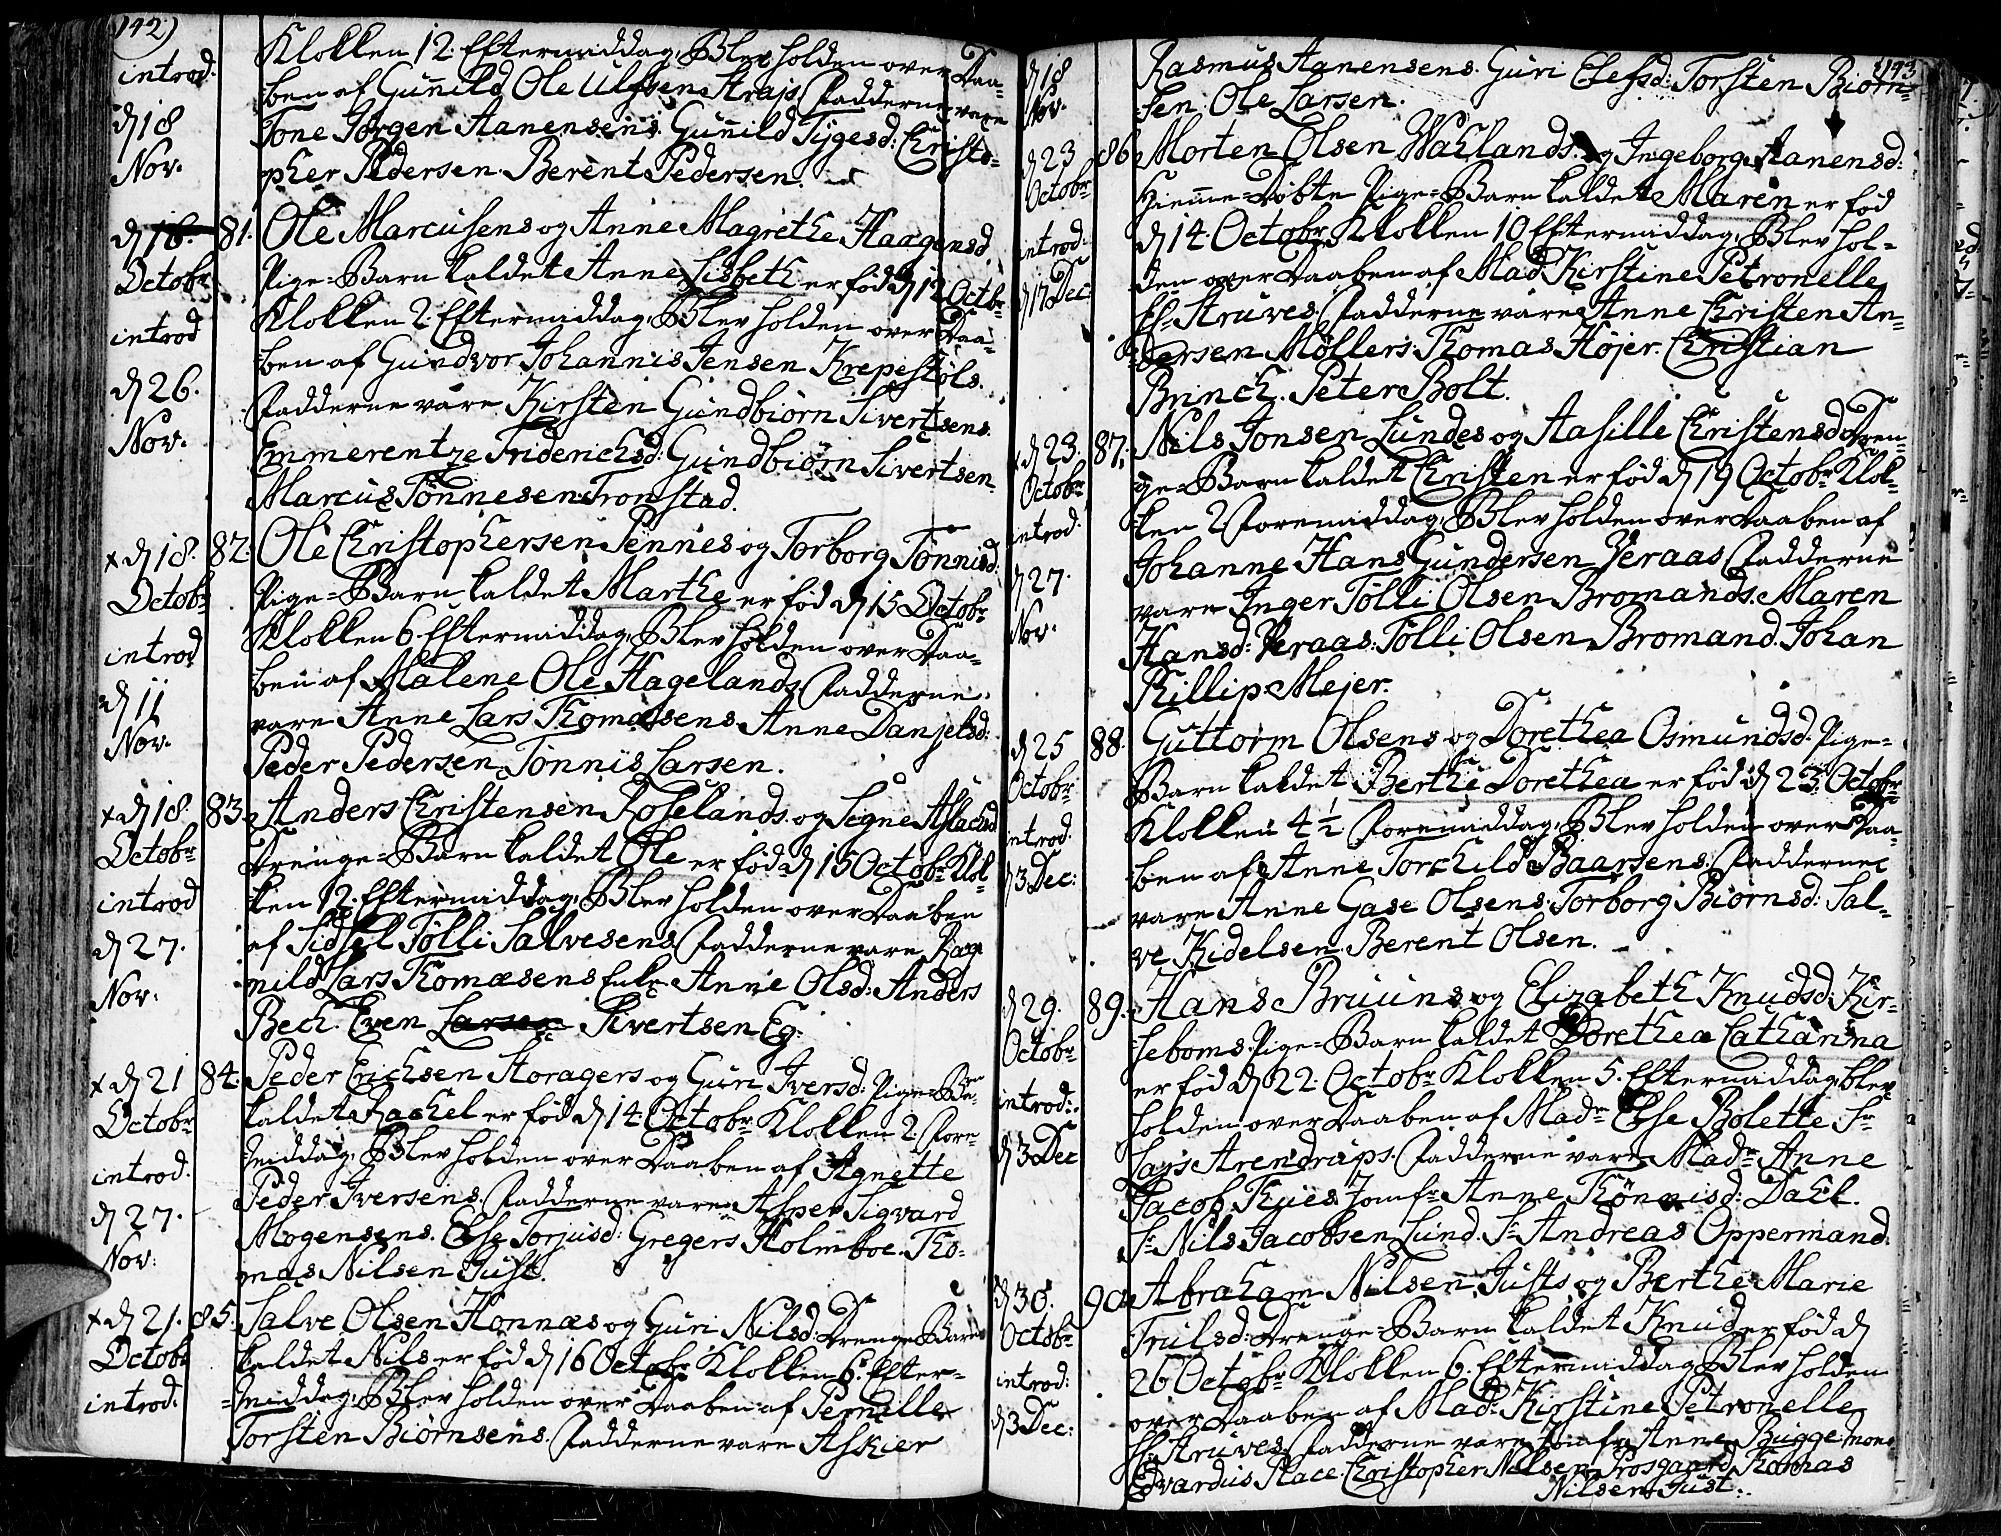 142)
Klokken 12. Eftermiddag, Blev holden over Daa=
introd: =ben af Gunnild Ole Ulfsen Strajs Fadderne vare
d 18 Tone Jørgen Aanensens. Gunnild Tygesd: Christo=
Nov. pher Pedersen. Berent Pedersen.
d 18. 81. Ole Marcusens og Anne Magrethe Haagensd.
Octobr Pige=Barn kaldet Anne Lisbeth er fød d 12 Octbr
introd Klokken 2. Eftermiddag, Blev holden over Daa=
=ben af Gundvor Johannis Jensen Krepestøls.
d 26. Fadderne vare Kirsten Gundbiørn Sivertsens.
Nov. Emmerentze Friderichsd: Gundbiørn Sivertsen.
Marcus Tønnesen Tronstad.
x d 18. 82. Ole Christophersen Pennes og Torborg Tønnisd:
Octobr Pige=Barn kaldet Marthe er fød d 15 Octobr
Klokken 6. Eftermiddag, Blev holden over Daa=
introd ben af Malene Ole Hagelands Fadderne
d 11 vare Anne Lars Thomæsens. Anne Danjelsd:
Nov. Peder Pedersen. Tønnis Larsen.
x d 18. 83. Anders Christensen Roselands. og Segne Aslacsd
Octobr Drenge=Barn kaldet Ole er fød d 15 Octobr Klok=
introd ken 12. Eftermiddag, Blev holden over Daaben
d 27. af Sidsel Tølli Salvesens Fadderne vare Rag=
Nov: nild Lars Thomæsens Enke Anne Olsd: Anders
Bech. Even Larsen Sivertsen Eg:
x d 21 84. Peder Erichsen Storagers og Guri Iversd: Pige=Bn
Octobr kaldet Rachel er fød d 14. Octobr Klokken 2. Fore=
introd. middag, Blev holden over Daaben af Agnette
d 27. Peder Iversens. Fadderne vare Asper Sigvard
Mogensens. Else Torjusd: Gregers Holmboe. Tho=
Nov: mas Nilsen Just.
x d 21. 85. Salve Olsen Honnæs og Guri Nilsd: Drenge Barn
Octobr kaldet Nils er fød d 16 Octobr Klokken 6. Efter=
introd: =middag, Blev holden over Daaben af Pernille
Torsten Biørnsens. Fadderne vare Askier
143
d 18 Rasmus Aanensens. Guri Elefsd: Torsten Biørn=
Nov. =sen. Ole Larsen.
d 23 86. Morten Olsen Wahlands. og Ingeborg Aanensd:
Octobr Hiemme=Døbte Pige=Barn kaldet Maren er fød
introd: d 14. Octobr Klokken 10 Eftermiddag, Blev hol=
d 17 Dec: den over Daaben af Mad Kirstine Petronelle
Sr Struves. Fadderne vare Anne Christen An=
=dersen Møllers. Thomas Højer. Christian
Brinch. Peter Bolt.
x d 23. 87. Nils Jonsen Lundes og Aasille Christensd: Dren=
Octobr ge=Barn kaldet Christen er fød d 19 Octobr Klok=
introd. ken 2. Formiddag, Blev holden over Daaben af
Johanne Hans Gundersen Veraas Fadderne
d 27. vare Inger Tølli Olsen Bromands. Maren
Nov. Hansd: Veraas: Tølli Olsen Bromand. Johan
Phillip Mejer.
d 25 88. Guttorm Olsens og Dorethea Osmundsd: Pige=
Octobr Barn kaldet Berthe Dorethea er fød d 23. Octobr
introd. Klokken 4 1/2 Foremiddag, Blev holden over Daa=
d 3 Dec: =ben af Anne Torchild Baarsens. Fadderne
vare Anne Gase Olsens. Torborg Biørnsd: Sal=
ve Kidelsen. Berent Olsen.
d 29. 89. Hans Bruuns og Elizabeth Knudsd: Kir=
Octobr =seboms. Pige=Barn kaldet Dorethea Catharina
er fød d 22. Octobr Klokken 5. Eftermiddag, blev
introd:. holden over Daaben af Madr Else Bolette Sr
d 3 Dec Lars Arendrups. Fadderne vare Madr Anne
Jacob Thues. Jomfr Anne Thønnisd: Dahl.
Sr Nils Jacobsen Lund. Sr Andreas Oppermand.
d 30. 90. Abraham Nilsen Justs og Berthe Marie
Octobr Trulsd: Drenge=Barn kaldet Knud er fød d
introd: 26 Octobr Klokken 6. Eftermiddag, Blev holden
d 3 Dec: over Daaben af Mad: Kirstine Petronelle
Sr Struves. Fadderne vare Jomfr Anne Bugge. Mons
Edvardus Place. Christopher Nilsen Frosgaard. Thomas
Nilsen Just.